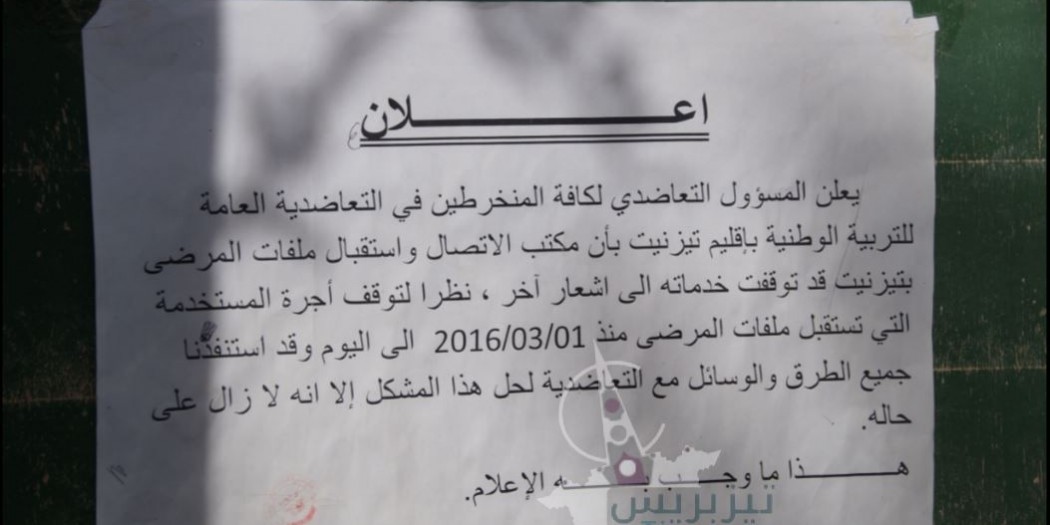 اعـــــــــــــلان
يعلن المسؤول التعاضدي لكافة المنخرطين في التعاضدية العامة
للتربية الوطنية بإقليم تيزنيت بأن مكتب الاتصال واستقبال ملفات المرضى
بتيزنيت قد توقفت خدماته الى اشعار آخر ، نظرا لتوقف أجرة المستخدمة
التي تستقبل ملفات المرضى منذ 2016/03/01 الى اليوم وقد استنفذنا
جميع الطرق والوسائل مع التعاضدية لحل هذا المشكل إلا انه لا زال على
حاله.
هـــــــذا ما وجـــب بـــــــه الإعلام.
تيزبريس